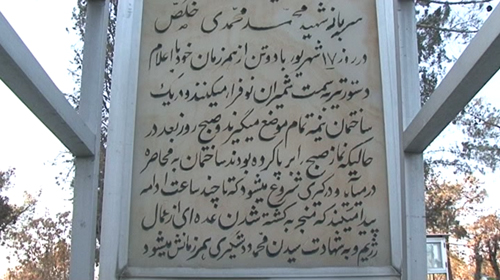 سرباز شهید محمد محمدی خلص
در روز ۱۷ شهریور با دو تن از همرزمان خود با اعلام
دستور تیر بسمت شمیران نو فرار میکنند و در یک
ساختمان نیمه تمام موضع میگیرند و صبح روز بعد در
حالیکه نماز صبح را برپا کرده بودند ساختمان به محاصره
در میآید و درگیری شروع میشود که تا چند ساعت ادامه
پیدا میکند که نتیجه کشته شدن عده ای از عمال
رژیم و به شهادت رسیدن محمد و دستگیری همرزمانش میشود